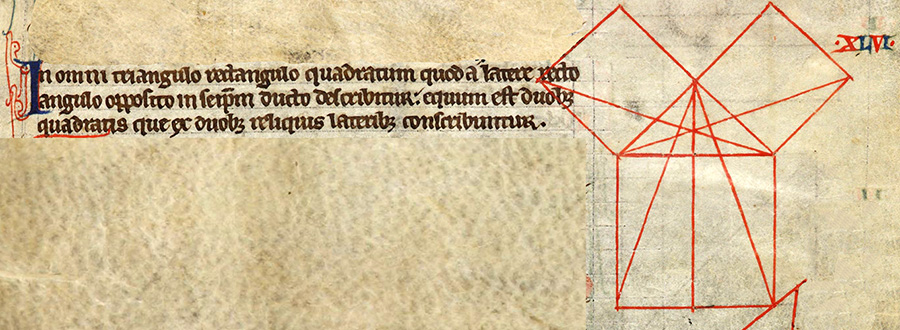 In omni triangulo rectangulo quadratum quod a latere recto
angulo opposito in seip̄m ducto describitur: equum est duobꝫ
quadratis que ex duobꝫ reliquis lateribꝫ conscribuntur.
·XLVI·